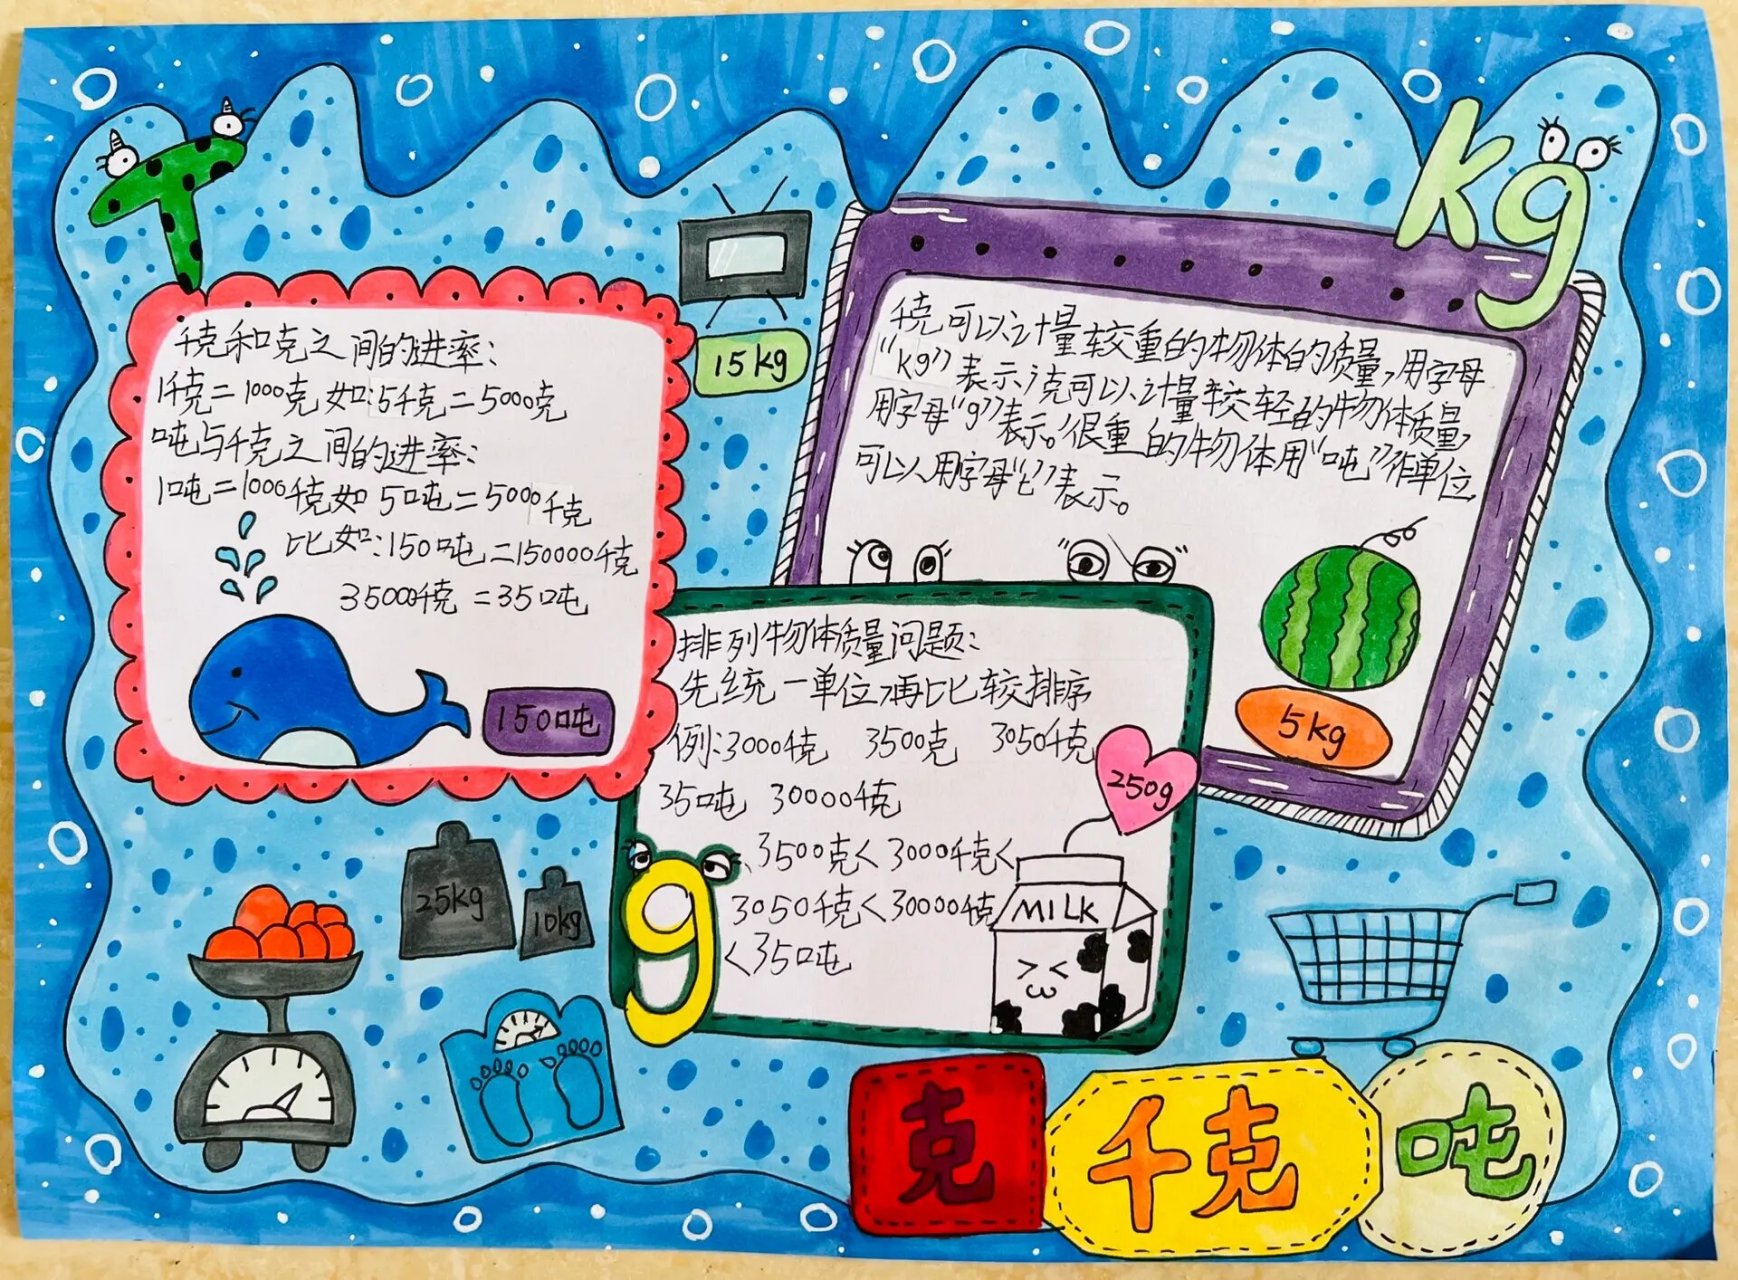 T
kg
千克和克之间的进率:
1千克=1000克 如:5千克=5000克
吨与千克之间的进率:
1吨=1000千克如 5吨=5000千克
比如:150吨=150000千克
35000千克=35吨
150吨
15kg
千克可以计量较重的物体的质量,用字母
“kg”表示,克可以计量较轻的物体质量,
用字母“g”表示。很重的物体用“吨”作单位,
可以用字母“t”表示。
5kg
排列物体质量问题:
先统一单位,再比较排序
例:3000千克 3500克 3050千克
35吨 30000千克
3500克<3000千克<
3050千克<30000千克
<35吨
250g
MILK
g
25kg
10kg
克 千克 吨